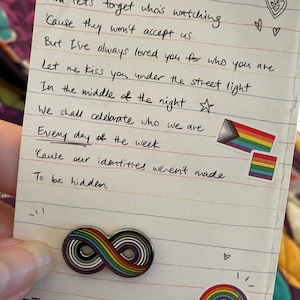 let's forget who's watching
'Cause they won't accept us
But I've always loved you for who you are
Let me kiss you under the street light
In the middle of the night
We shall celebrate who we are
Every day of the week
'Cause our identities weren't made
To be hidden